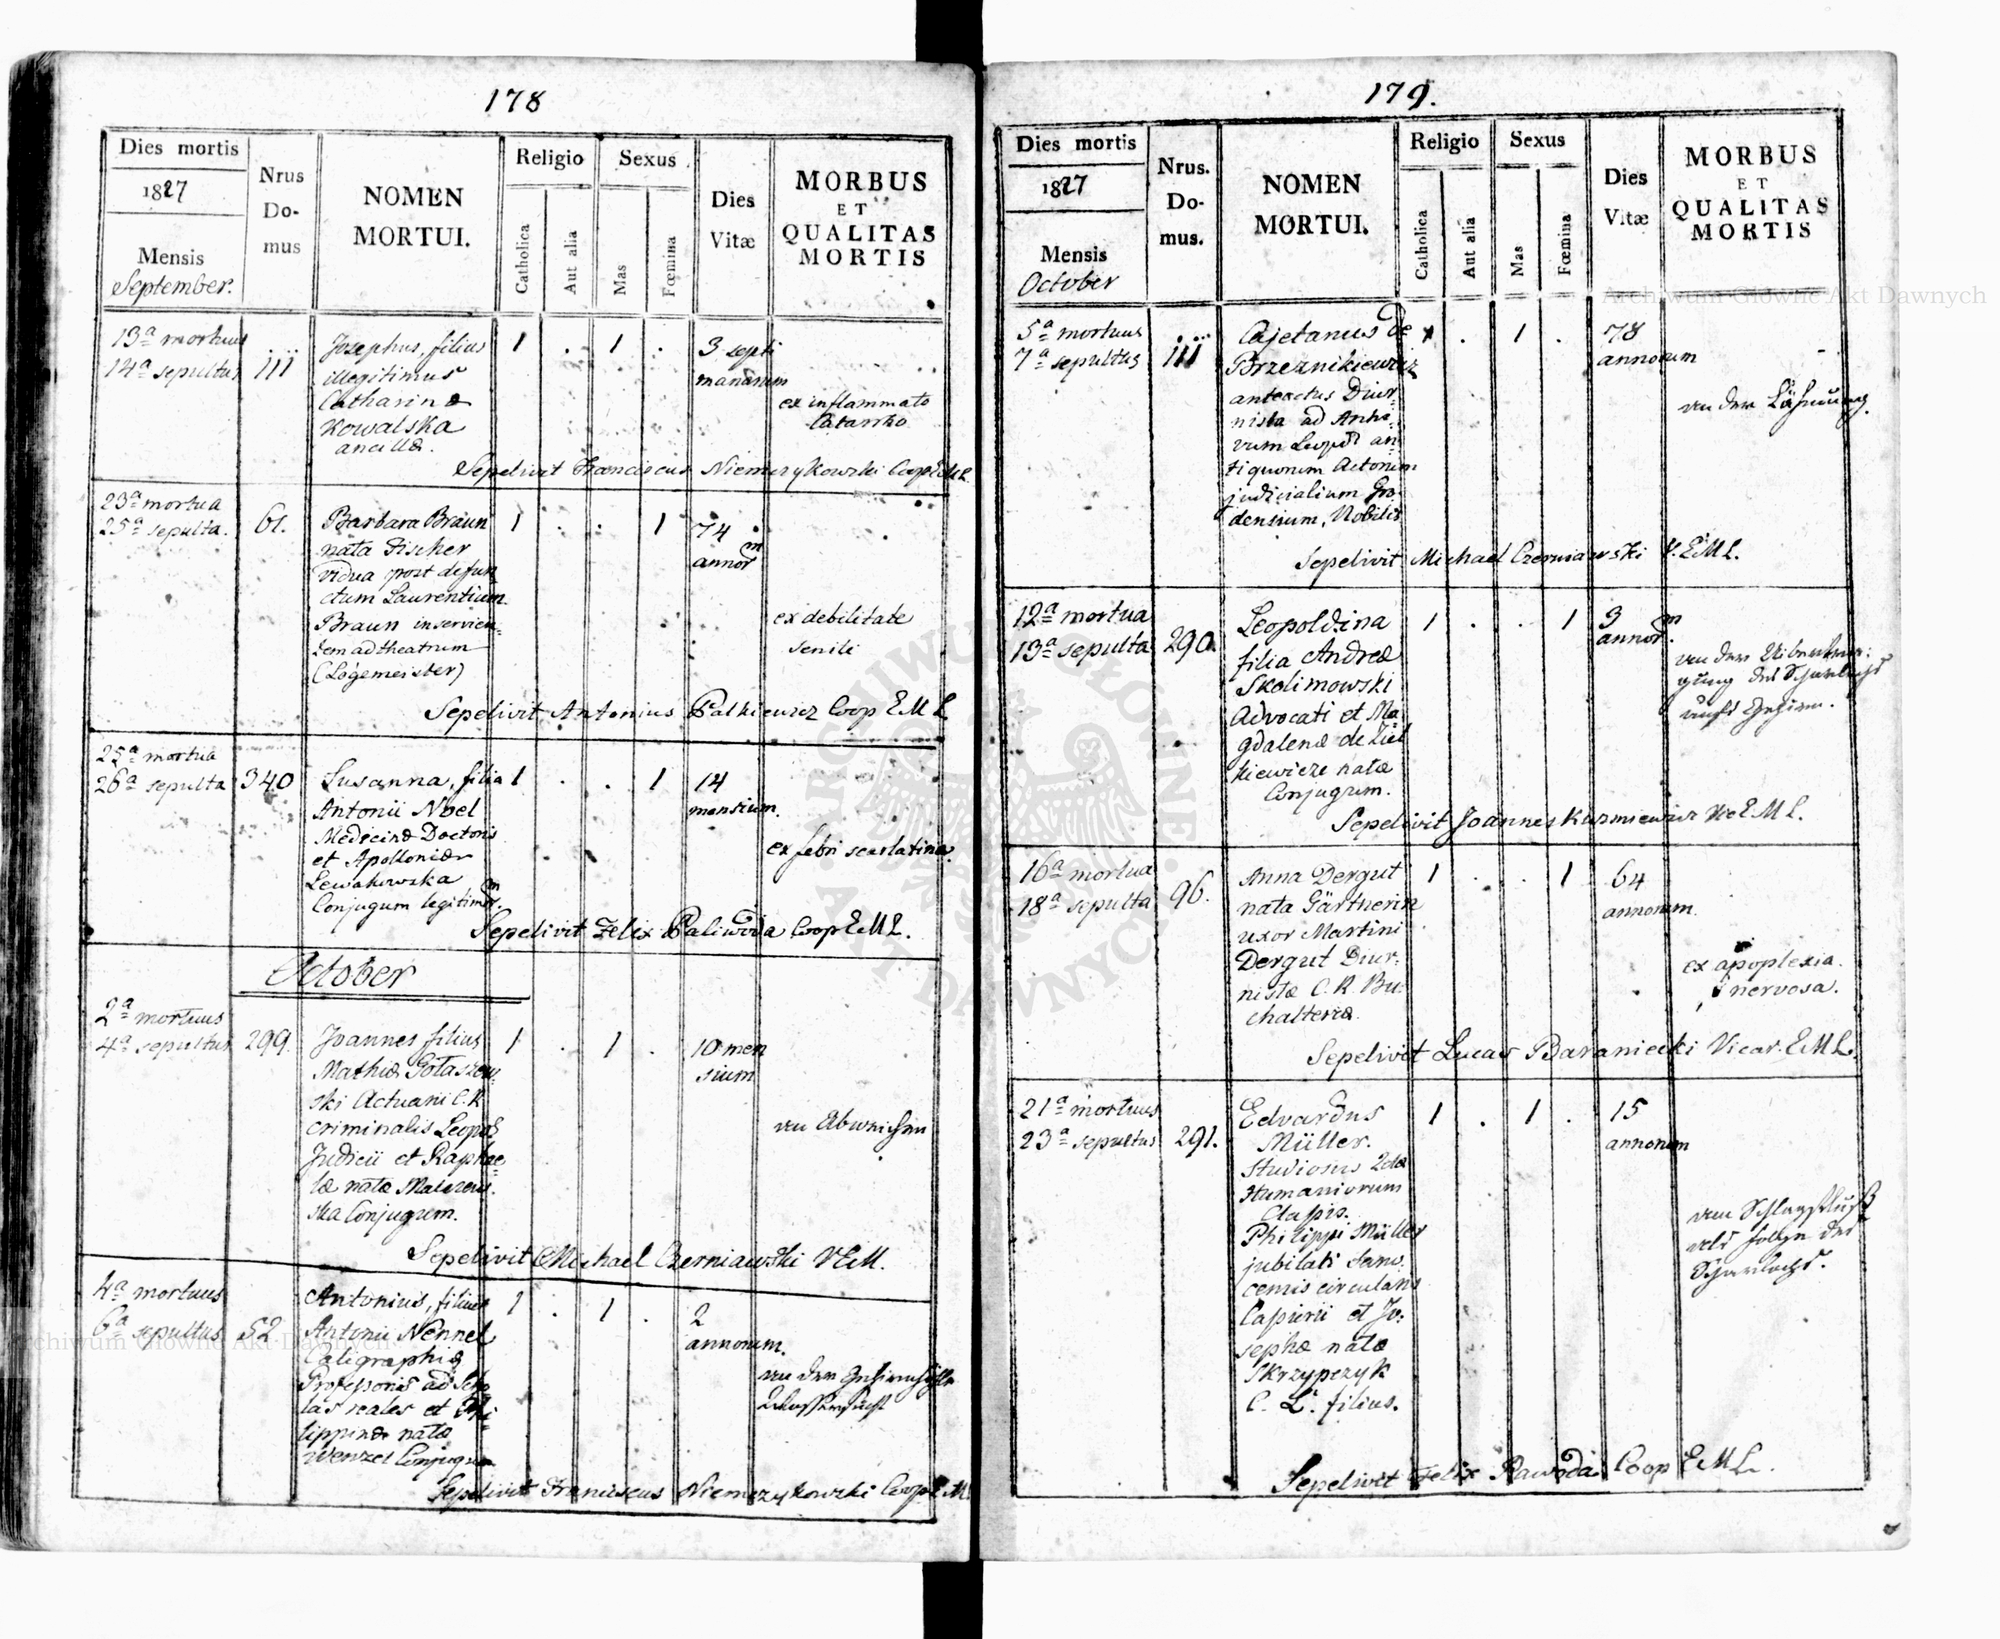 178
Dies mortis
1827
Mensis
September.
Nrus
Do-
mus
NOMEN
MORTUI.
Religio
Catholica
Aut alia
Sexus
Mas
Fœmina
Dies
Vitæ
MORBUS
ET
QUALITAS
MORTIS
13ª mortuus
14ª sepultus
iii
Josephus, filius
illegitimus
Catharinæ
Kowalska
ancillæ.
1 . 1 .
3 septi
manarum
ex inflammato
Catarrho
Sepelivit Franciscus Niemezykowski Coop EML
23ª mortua
25ª sepulta.
61.
Barbara Braun
nata Fischer
vidua post defun
ctum Laurentium
Braun inservien
tem ad theatrum
(Logemeister)
1 . . 1
74
annorm
ex debilitate
senili
Sepelivit Antonius Coop EML
25ª mortua
26ª sepulta
340
Susanna, filia
Antonii Noel
Medecinæ Doctoris
et Apolloniæ
Lewakowska
Conjugum legitimorm.
1 . . 1
14
mensium.
ex febri scarlatina.
Sepelivit Felix Paliwoda Coop EML.
October
2ª mortuus
4ª sepultus
299.
Joannes filius
Mathiæ Gołaszew
ski Actuarii C.R.
criminalis Leopol
Judicii et Raphae
læ natæ
ska Conjugum.
1 . 1 .
10 men
sium
von Abweichen
Sepelivit Michael Czerniawski VEM.
4ª mortuus
6ª sepultus
52
Antonius, filius
Antonii Nennel
Caligraphiæ
Professoris ad Scho
las reales et Phi
lippinæ natæ
Wenzel Conjugum
1 . 1 .
2
annorum.
von der Gehirnhöhle
Wassersucht
Sepelivit Franciscus Niemezykowski Coop EM
179.
Dies mortis
1827
Mensis
October
Nrus.
Do-
mus.
NOMEN
MORTUI.
Religio
Catholica
Aut alia
Sexus
Mas
Fœmina
Dies
Vitæ
MORBUS
ET
QUALITAS
MORTIS
5ª mortuus
7ª sepultus
iii
Cajetanus de
Brzeznikiewicz
anteactus Diur
nista ad Archi
vum Leopol an
tiquorum Actorum
judicialium Gro
densium, Nobilis
1 . 1 .
78
annorum
von der Lähmung.
Sepelivit Michael Czerniawski V. EML.
12ª mortua
13ª sepulta
290.
Leopoldina
filia Andreæ
Skolimowski
Advocati et Ma
gdalenæ de Ziet
kiewicze natæ
Conjugum.
1 . . 1
3
annorm.
von der
gung des Scharlachs
aufs Gehirn.
Sepelivit Joannes Kuzmiewicz EML.
16ª mortua
18ª sepulta
96.
Anna Dergut
nata Gärtnerin
uxor Martini
Dergut Diur
nistæ C. R. Bu
chalteriæ.
1 . . 1
64
annorum.
ex apoplexia
nervosa.
Sepelivit Lucas Baraniecki Vicar. EML.
21ª mortuus
23ª sepultus
291.
Edvardus
Müller.
Studiosus 2dæ
Humaniorum
Classis.
Philippi Müller
jubilati
circularis
Cassirii et Jo:
sephæ natæ
Skrzypczyk
C. L. filius.
1 . 1 .
15
annorum
vom Schlagfluß
als Folge des
Scharlachs.
Sepelivit Felix Coop EML.
Archiwum Główne Akt Dawnych
Archiwum Główne Akt Dawnych
ARCHIWUM GŁÓWNE AKT DAWNYCH